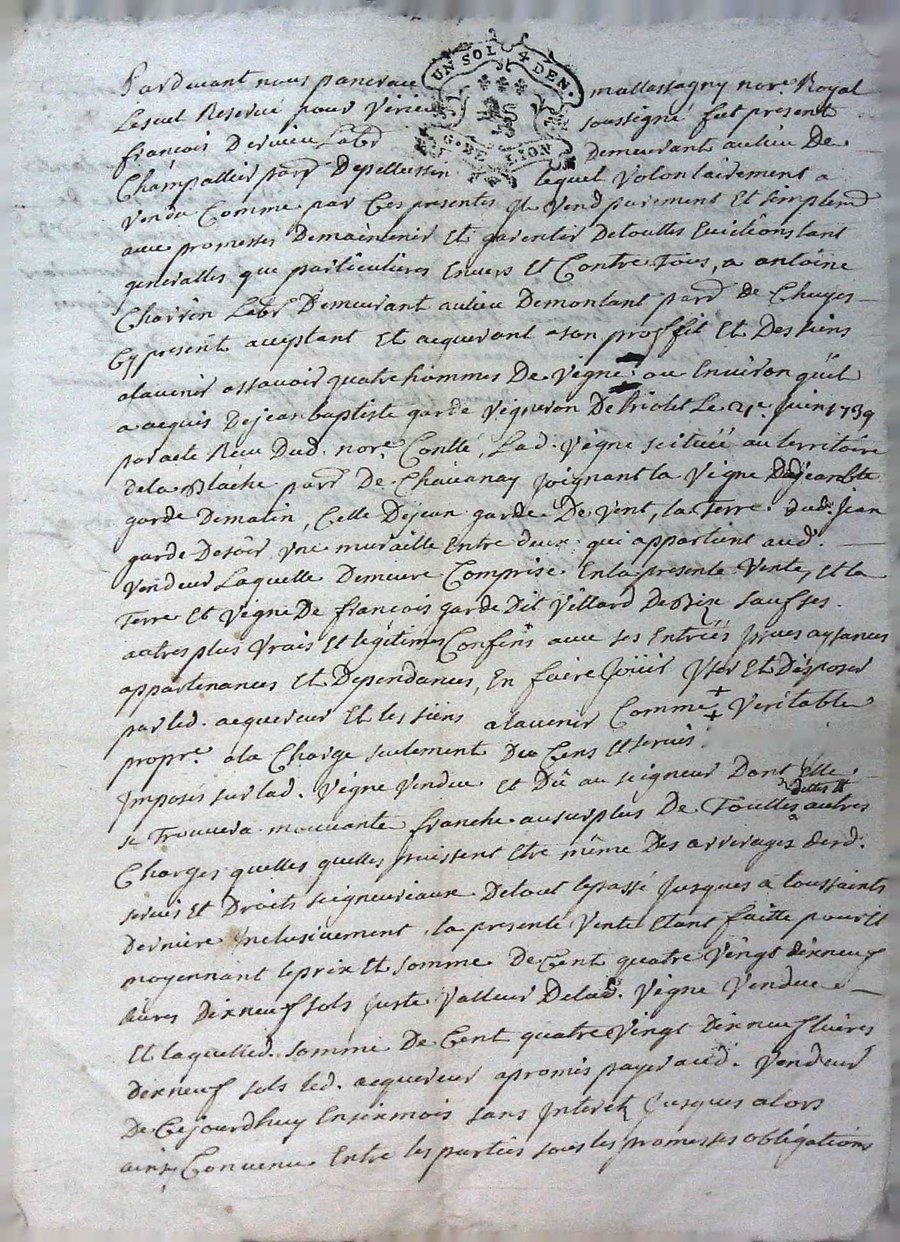 UN SOL 4 DEN.
G. DE LION
Pardevant nous pancrace mallassagny nore. Royal
Lescul Reservé pour Verce soussigné fut present
françois Dervieu Labr Demeurant au lieu De
Champallier parr Depellussin lequel Volontairement a
Vendu Comme par Ces presentes Jl Vend purement Et simplemt
avec promesses Demaintenir Et garentir Detouttes Evictions tant
generalles que particulieres Envers Et Contre Tous, a antoine
Charrin Labr Demeurant au lieu Demontant parr de Chuyes
Cy present aceptant Et acquerant a son proffit Et Des siens
alavenir assavoir quatre hommes De Vigne ou Environ qu'il
a acquis Dejean baptiste garde Vigneron De Le 21e. Juin 1739
par acte Reçu Dud. nore. Contte, Lad. Vigne scituée au territoire
dela Blache parr De Chavanay Joignant la Vigne Dud Jean Bte
garde Dematin, Celle Dejean garde De Vent, la Terre dud. Jean
garde Desoir Une muraille Entre deux qui appartient aud.
Vendeur Laquelle Demeure Comprise En la presente Vente, Et la
Terre Et Vigne De françois garde Dit Villard De Bize sauf ses
autres plus Vrais Et legitimes Confins avec ses Entrées Jssues aysances
appartenances Et Dependances, En faire Joüir User Et Disposer
par led. acquereur Et les siens alavenir Comme Veritable
propre. ala Charge seulement Du Cens Et servis
Jmposés sur lad. Vigne Vendue Et Dû au seigneur Dont Elle
se Trouvera mouvante franche au surplus De Touttes dettes Et autres
Charges quelles quelles puissent Etre même Des arrerages Desd.
servis Et Droits seigneuriaux Detout lepassé Jusques a toussaints
Derniere Jnclusivement, la presente Vente Etant faitte pour Et
moyennant leprix Et somme De Cent quatre Vingt dixneuf
livres Dixneuf sols Juste Valleur Delad. Vigne Vendue
Et laquelled. somme De Cent quatre Vingt Dixneuf livres
Dixneuf sols led. acquereur a promis payer aud. Vendeur
De Cejourdhuy En six mois sans Jnteret Jusques alors
ainsy Convenu Entre les parties sous les promesses obligations